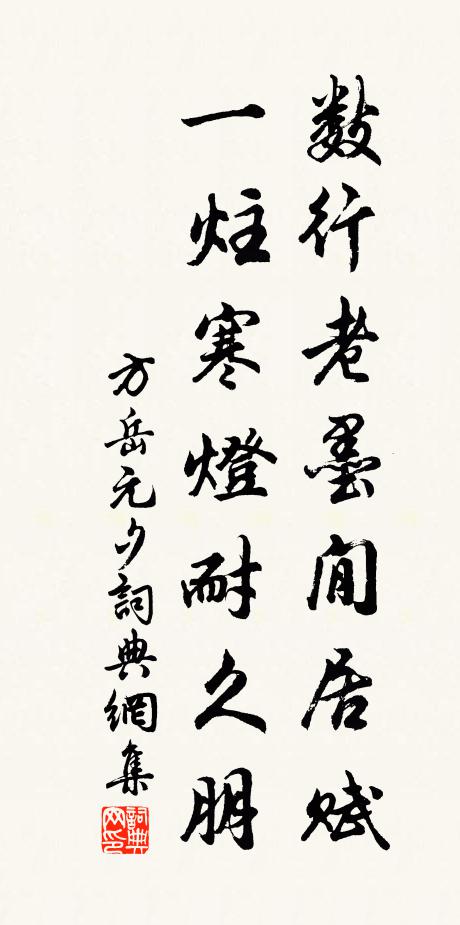 數行老墨閒居賦
一炷寒燈耐久朋
方岳元夕詞典網集
詞典网印